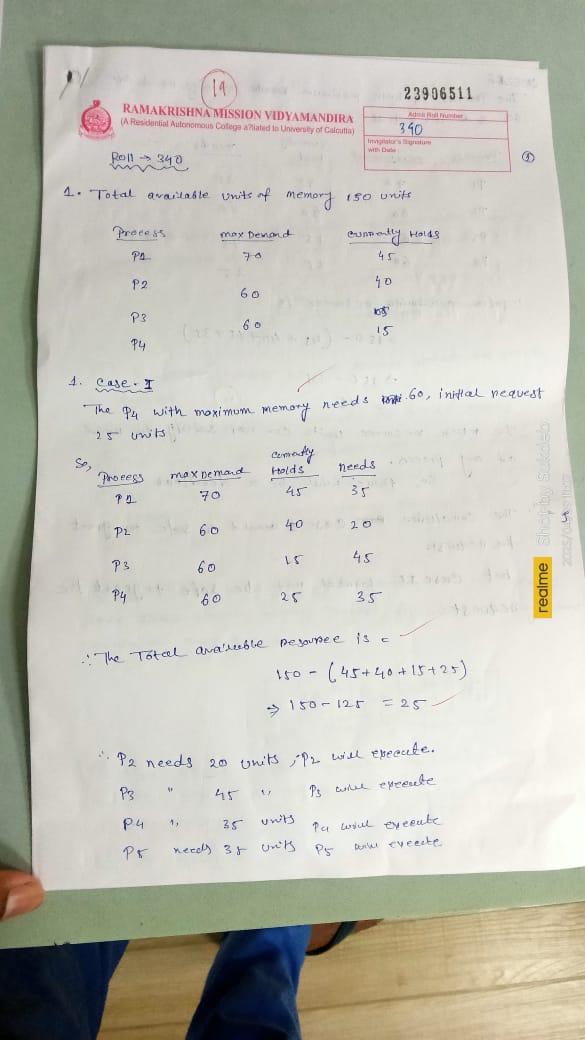 19
23906511
RAMAKRISHNA MISSION VIDYAMANDIRA
(A Residential Autonomous College a?liated to University of Calcutta)
Admit Roll Number
340
Invigilator's Signature
with Date
Roll → 340
1
1. Total available units of memory 150 units
Process max Demand currently Holds
P1 70 45
P2 60 40
P3 60 15
P4
1. Case - I
The P4 with maximum memory needs 60, initial request
25 units
So,
Process max Demand Currently Holds needs
P1 70 45 35
P2 60 40 20
P3 60 15 45
P4 60 25 35
∴ The Total available resource is =
150 - (45+40+15+25)
⇒ 150 - 125 = 25
∴ P2 needs 20 units, P2 will execute.
P3 " 45 " P3 will execute
P4 " 35 units P4 will execute
P5 needs 35 units P5 will execute
realme Shot by Sukdeb